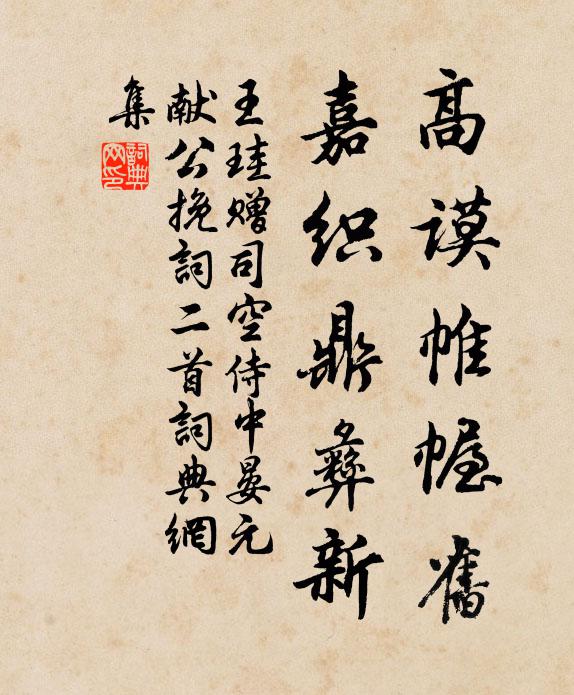 高謨帷幄舊
嘉织鼎彝新
王珪赠司空侍中晏元
献公挽詞二首詞典網
集
詞典
网印